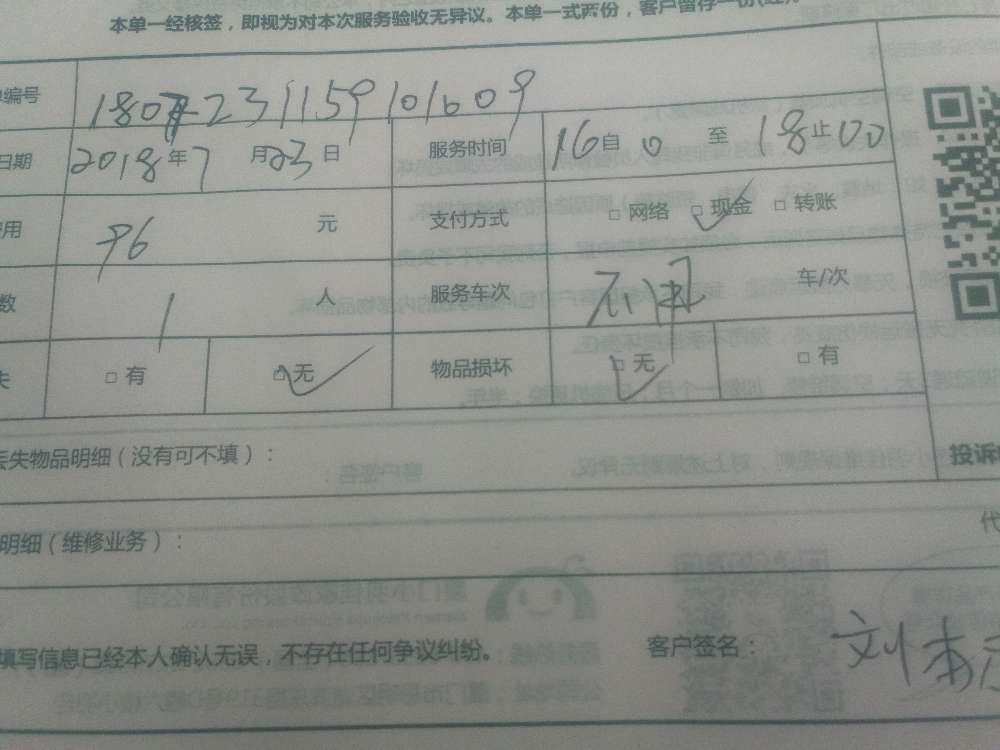 本单一经核签，即视为对本次服务验收无异议。本单一式两份，客户留存一份
编号 1807231159101609
日期 2018年7月23日 服务时间 16自10至18止00
用 96元 支付方式 □网络 □现金 □转账
数 1人 服务车次 车/次
失 □有 □无 物品损坏 □无 □有
丢失物品明细（没有可不填）： 投诉
明细（维修业务）： 代
填写信息已经本人确认无误，不存在任何争议纠纷。 客户签名： 刘